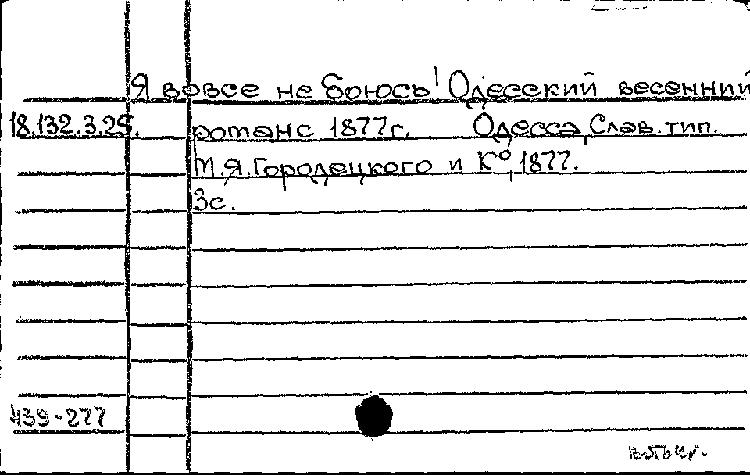 Я вовсе не боюсь! Одесский весенний
18.132.3.25. романс 1877г. Одесса, Слав. тип.
М.Я. Городецкого и К⁰, 1877.
3с.
439-277